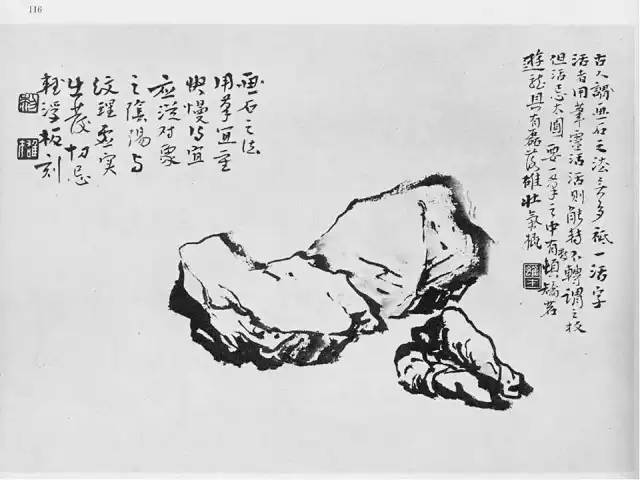 116
古人謂画石之法無多祗一活字
活者用筆靈活活則能轉不轉謂之板
但活忌太圓要一筆之中有頓矯若
遊龍具有磊落雄壯氣概
画石之法
用筆宜重
快慢得宜
應從对象
之陰陽与
紋理虛實
生發切忌
輕浮板刻